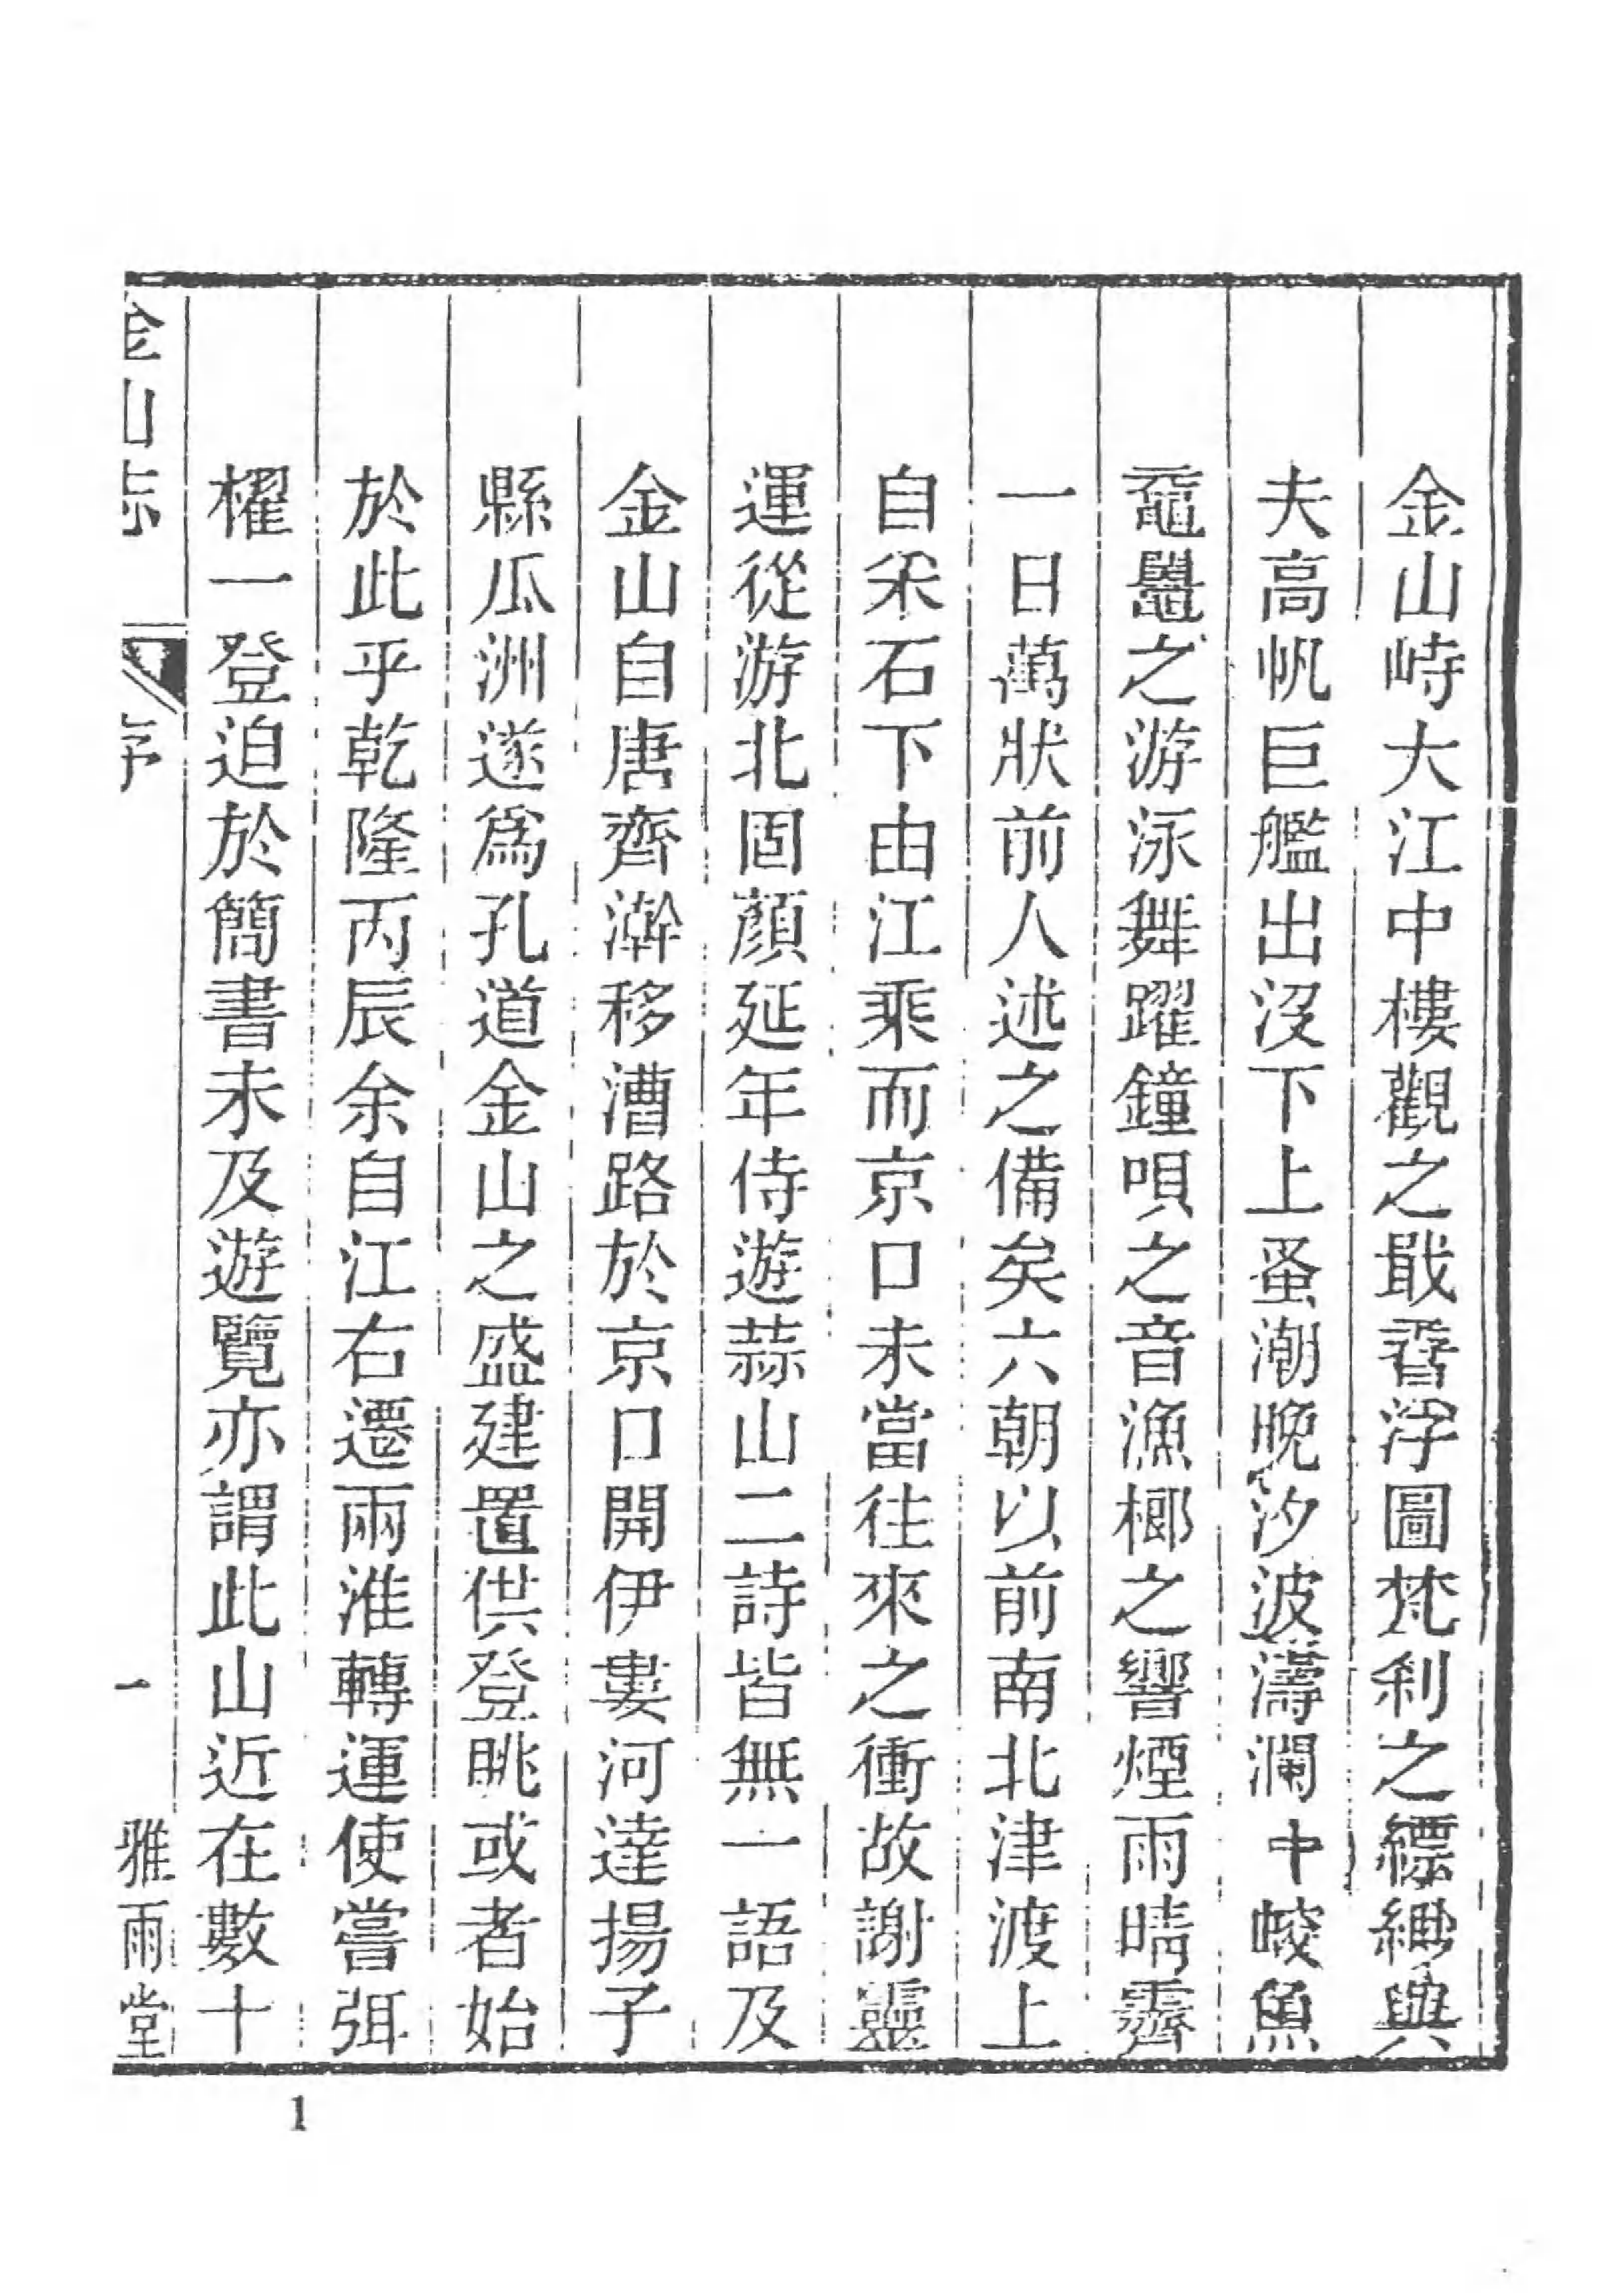 金山峙大江中樓觀之戢孴浮圖梵刹之縹緲與
夫高帆巨艦出沒下上蚤潮晚汐波濤瀾中蛟魚
黿鼉之游泳舞躍鐘唄之音漁榔之響煙雨晴霽
一日萬狀前人述之備矣六朝以前南北津渡上
自采石下由江乘而京口未當往來之衝故謝靈
運從游北固顏延年侍遊蒜山二詩皆無一語及
金山自唐齊澣移漕路於京口開伊婁河達揚子
縣瓜洲遂爲孔道金山之盛建置供登眺或者始
於此乎乾隆丙辰余自江右遷兩淮轉運使嘗弭
櫂一登迫於簡書未及遊覽亦謂此山近在數十
金山志 序 一 雅雨堂
1